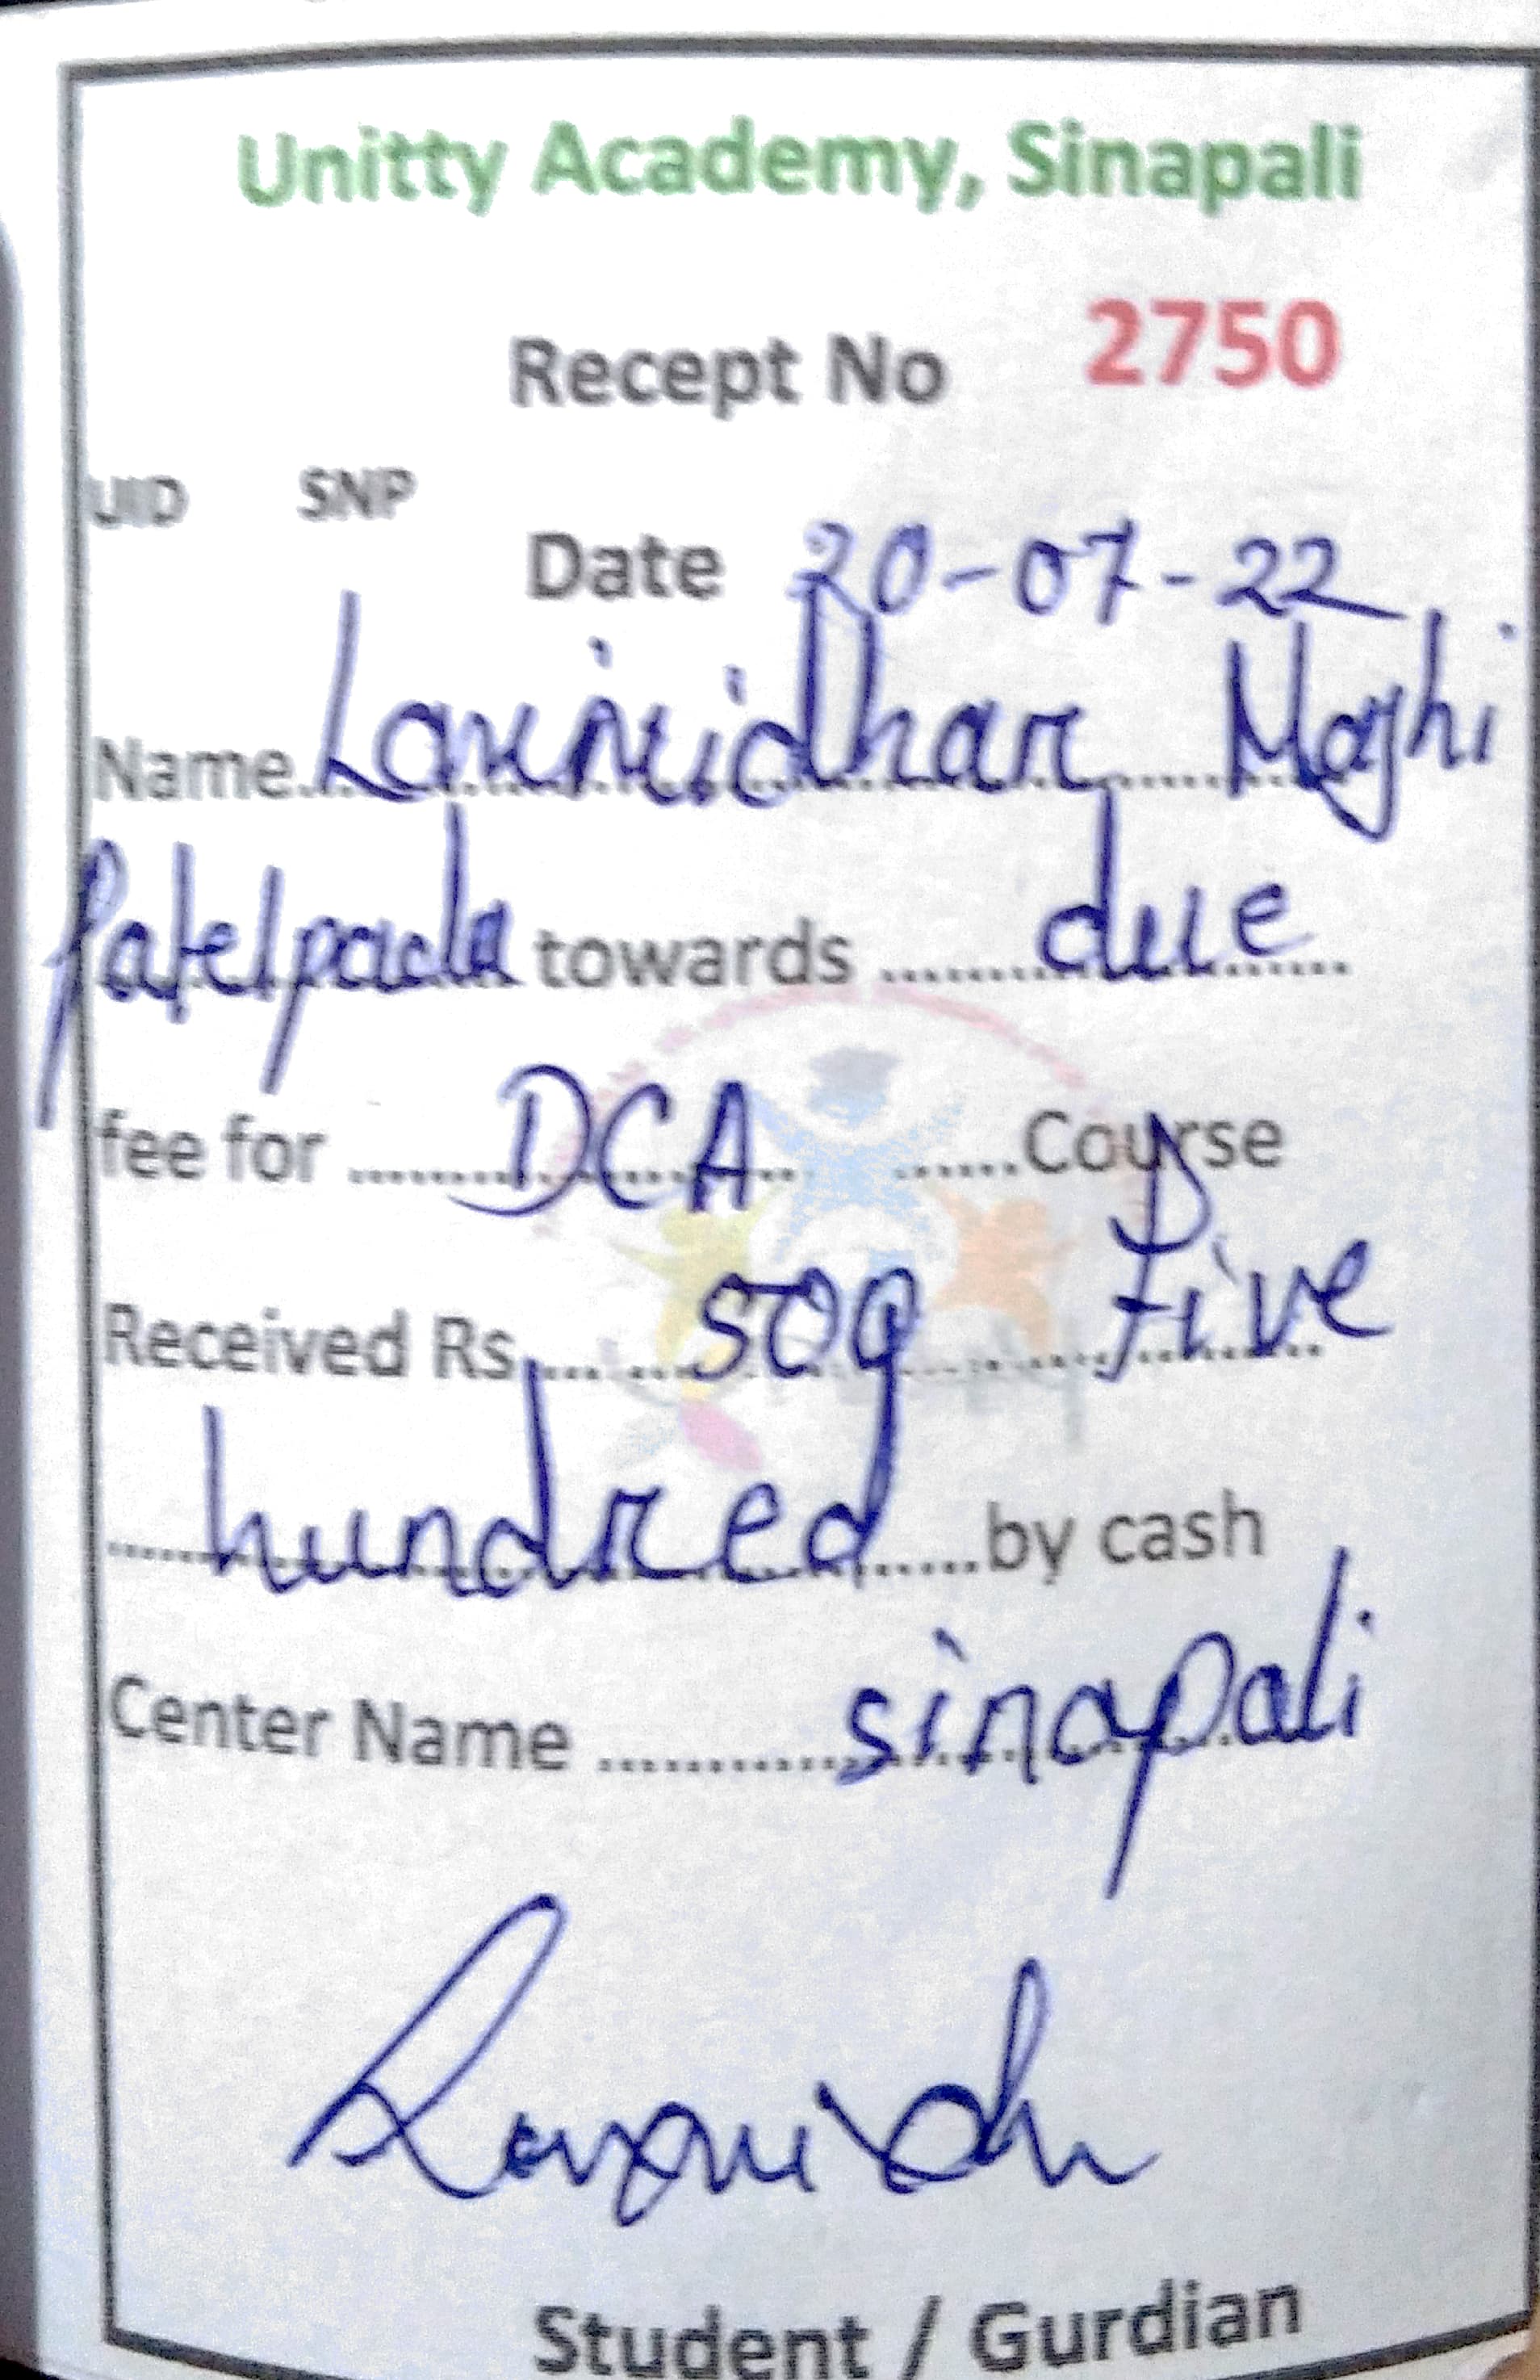 Unitty Academy, Sinapali
Recept No 2750
UID SNP
Date 20-07-22
Name. Majhi
Patelpada towards ........ due
fee for ........ DCA ........ Course
Received Rs ........ 500 Five
........ hundred ........ by cash
Center Name ........ sinapali
Student / Gurdian